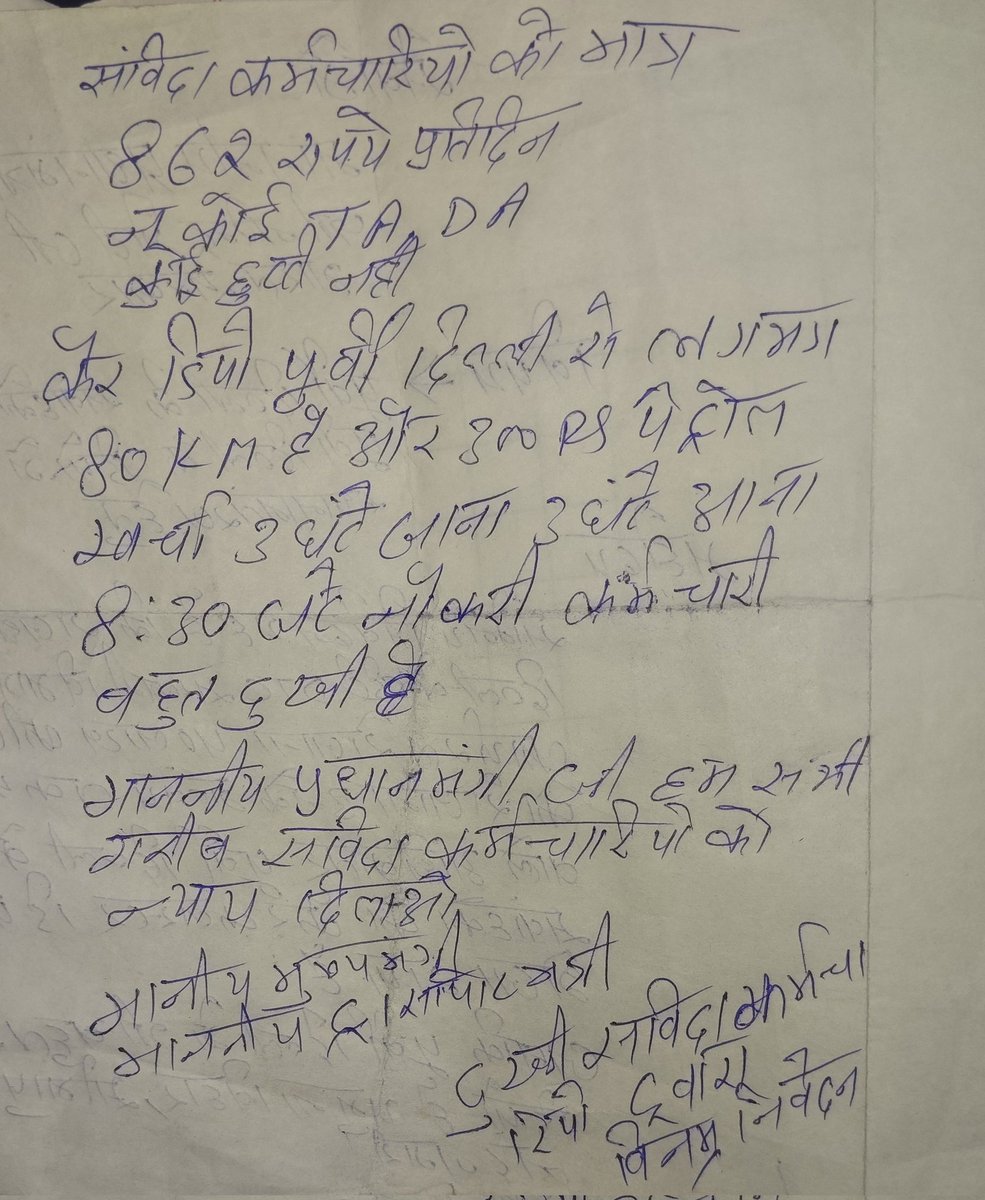 संविदा कर्मचारियो को मात्र
862 रुपये प्रतिदिन
न कोई TA, DA
कोई छुट्टी नही
कैर डिपो पूर्वी दिल्ली से लगभग
80 KM है और 300 RS पेट्रोल
खर्चा 3 घंटे जाना 3 घंटे आना
8:30 घंटे नौकरी कर्मचारी
बहुत दुखी है
माननीय प्रधानमंत्री जी हम सभी
गरीब संविदा कर्मचारियो को
न्याय दिलाओ
मानीय मुख्यमंत्री
माननीय ट्रांसपोर्ट मंत्री
दुखी संविदा कर्मचा
रियो द्वारा
विनम्र निवेदन